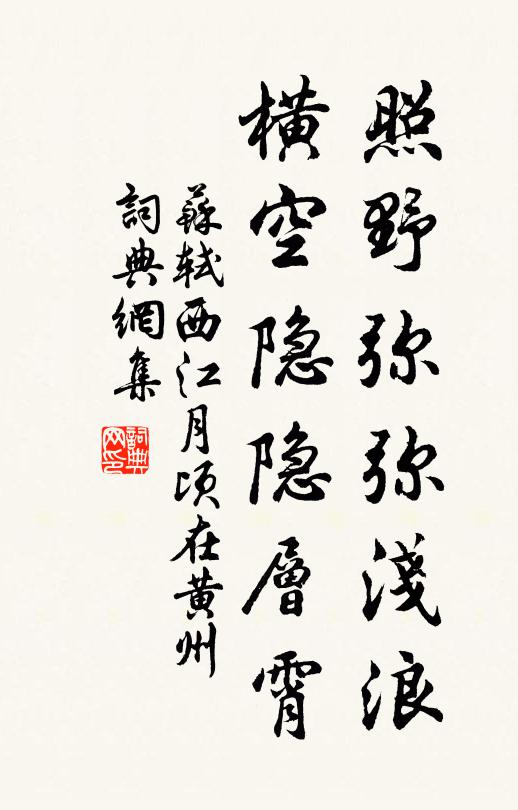 照野弥弥淺浪
橫空隐隐層霄
蘇軾西江月頃在黃州
詞典網集
詞典网印